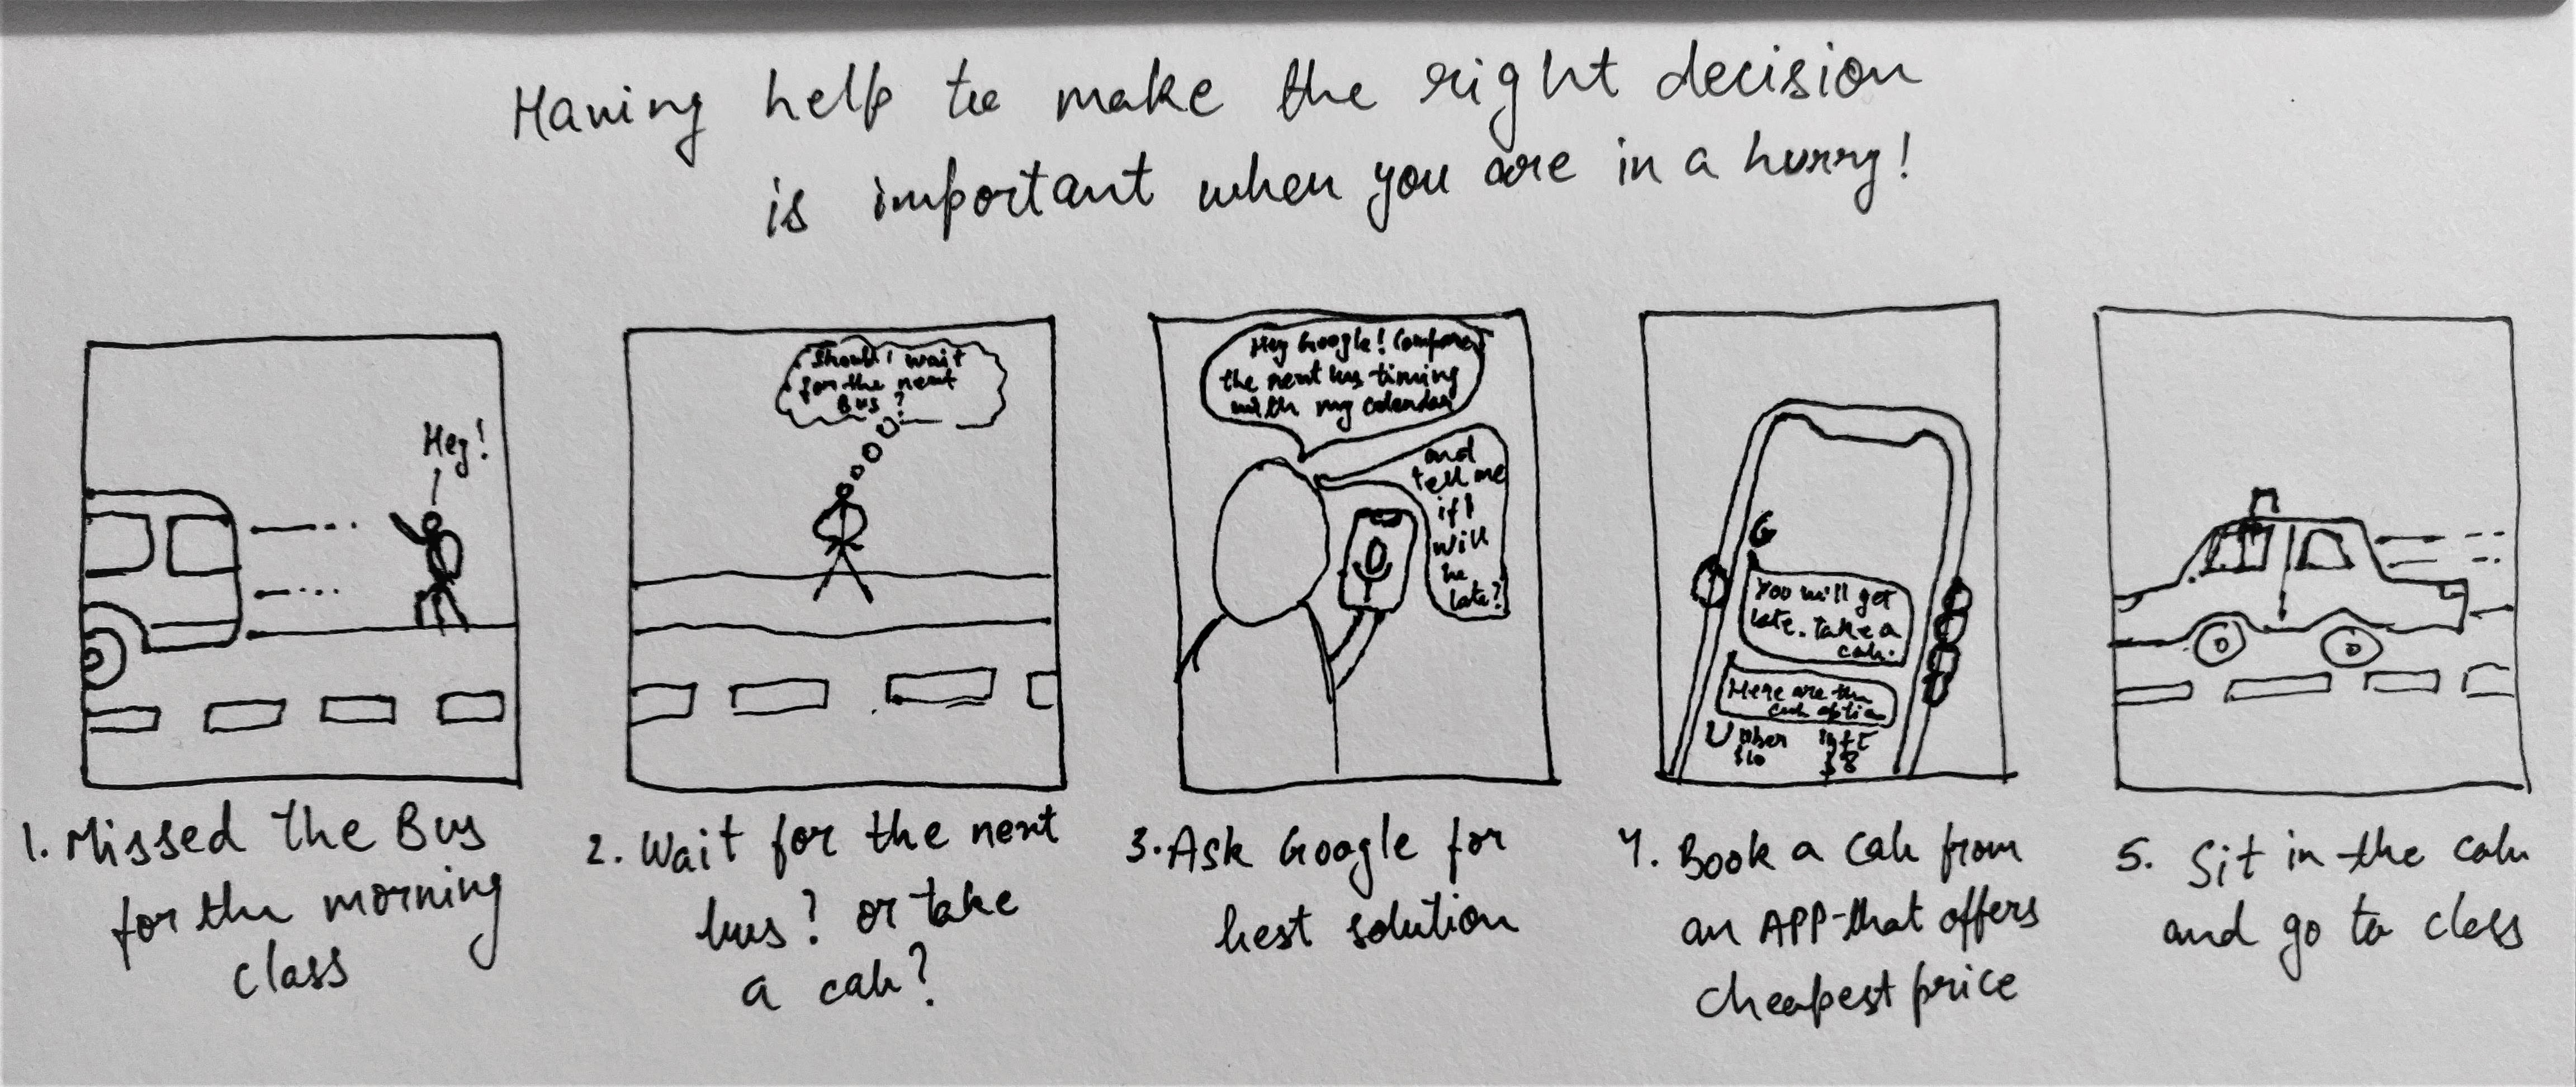 Having help to make the right decision
is important when you are in a hurry!
Hey!
1. Missed the Bus
for the morning
class
Should I wait
for the next
Bus?
2. Wait for the next
bus? or take
a cab?
Hey Google! Compare
the next bus timing
with my calendar
and
tell me
if I
will
be
late?
3. Ask Google for
best solution
G
You will get
late. Take a
cab.
Here are the
cab option
Uber Lyft
$10 $8
4. Book a cab from
an APP that offers
cheapest price
5. Sit in the cab
and go to class